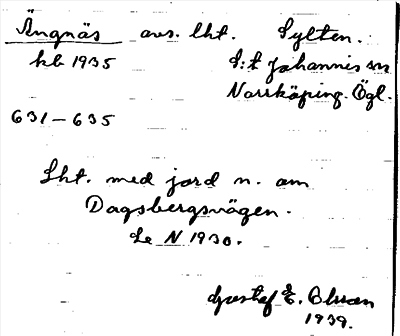 Ängnäs avs. lht. Sylten.
kb 1935 S:t Johannis sn
Norrköping. Ögl.
631-635
Lht. med jord n. om
Dagsbergsvägen.
Se N 1930.
Gustaf E. Olsson
1939.